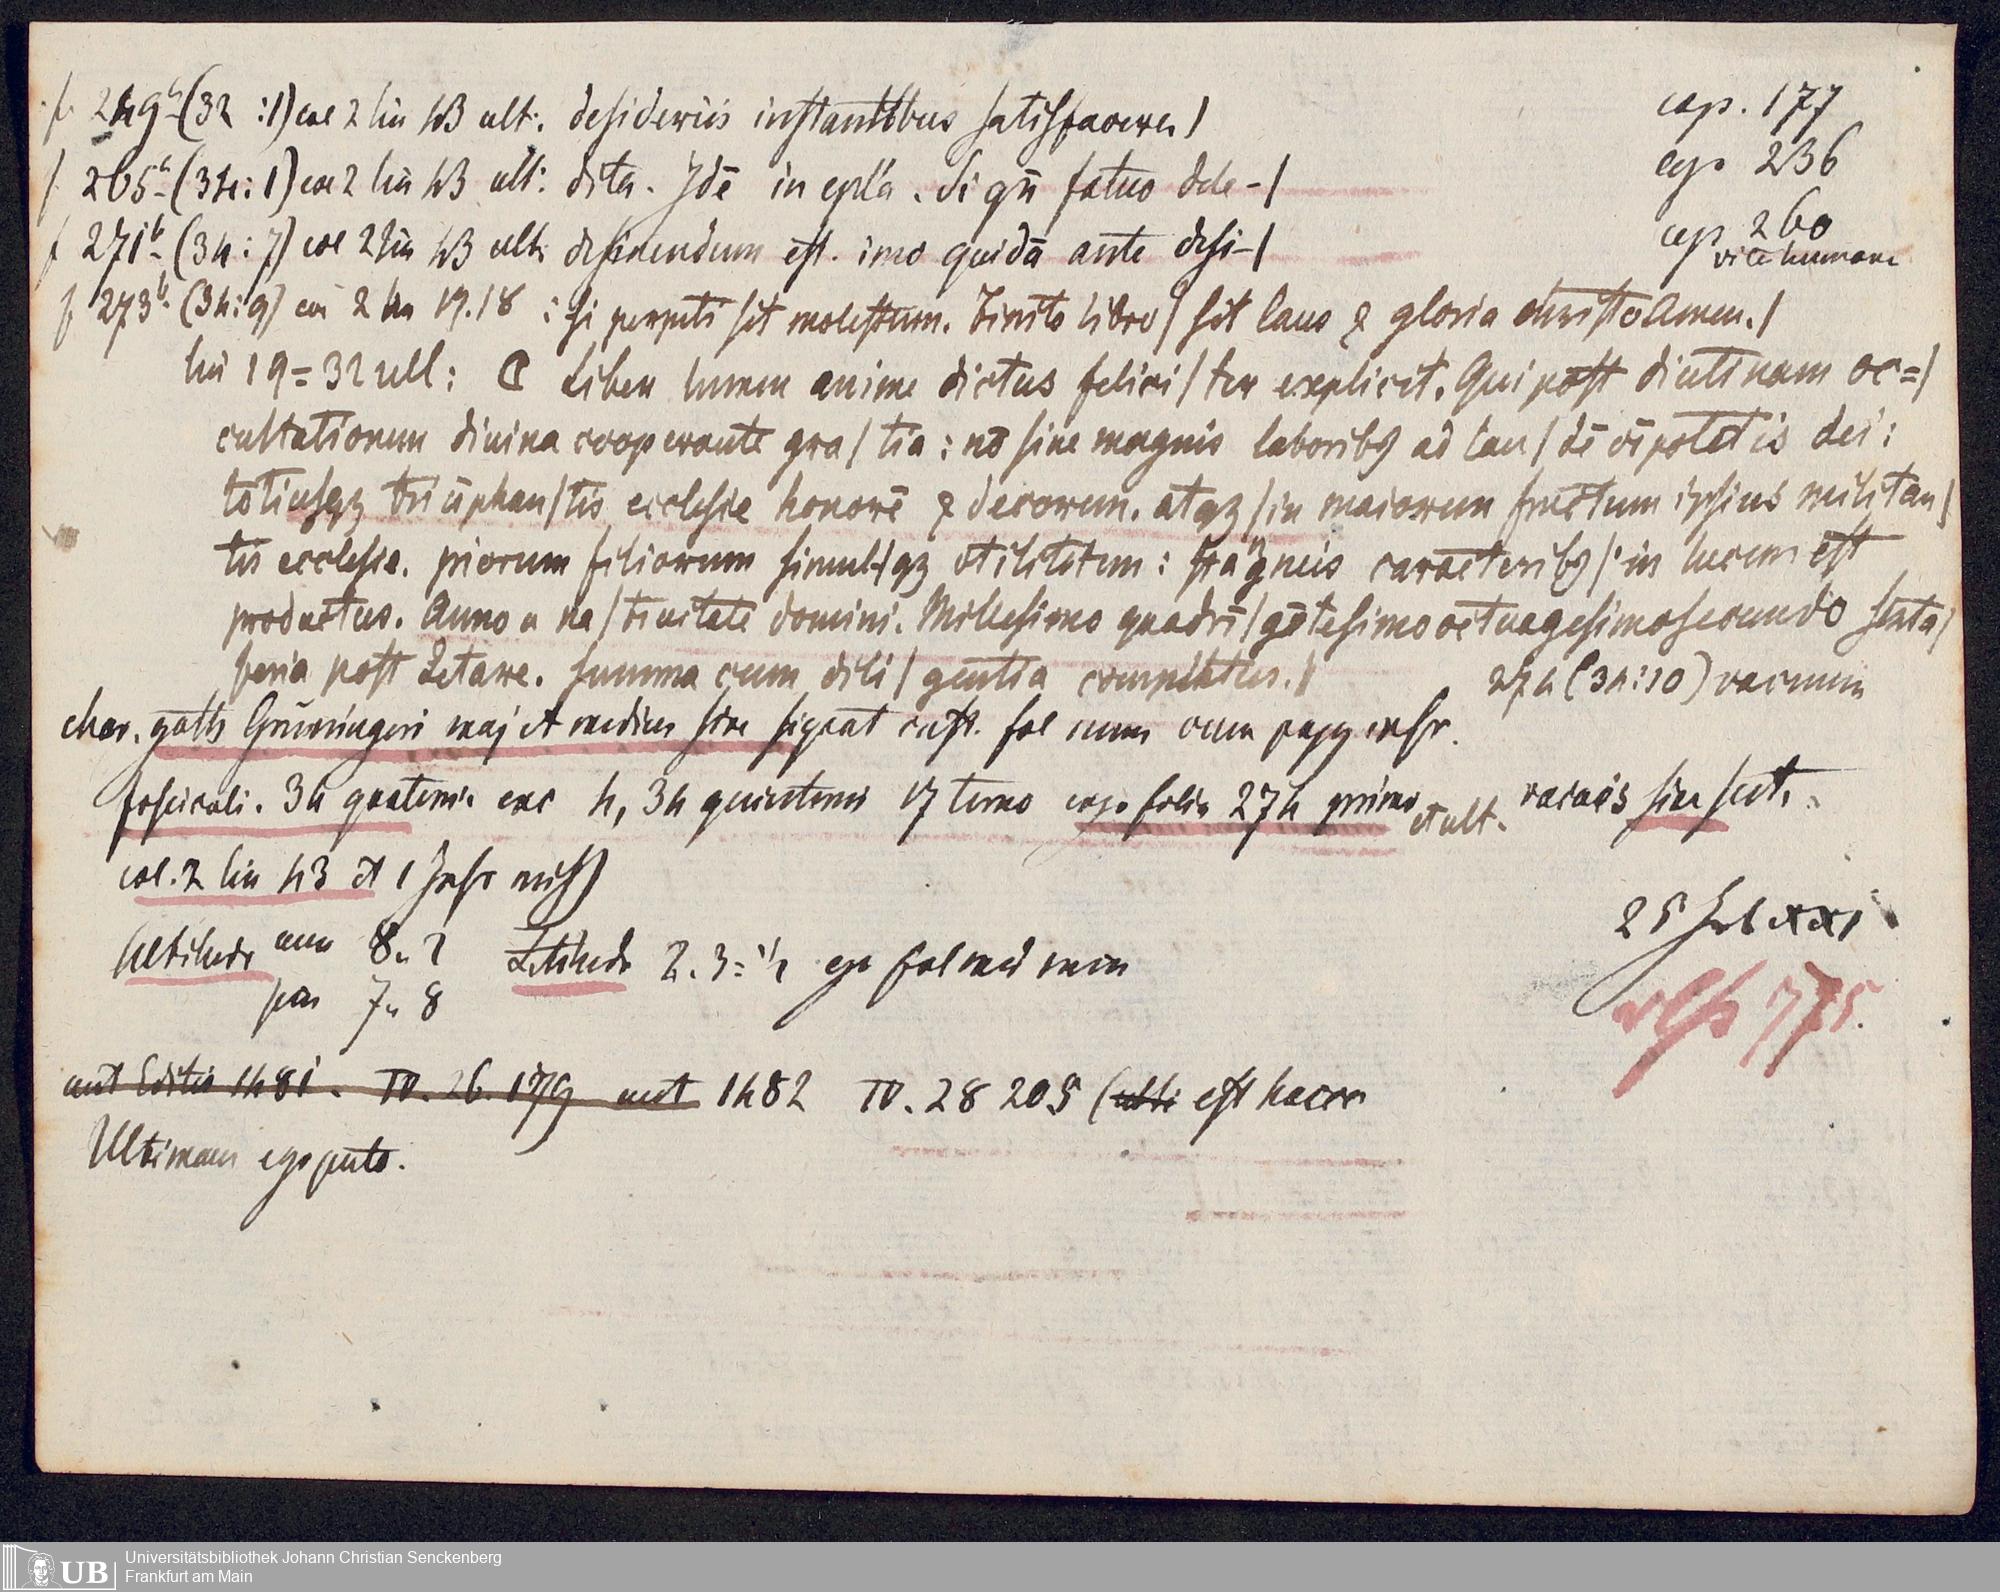 f 249b (32:1) col 2 lin 43 ult. desideriis instantibus satisfacere / cap. 177
f 265b (34:1) col 2 lin 43 ult: dita. Idē in epl'a. Si qn̄ fatuo dde-/ cap 236
f 271b (34:7) col 2 lin 43 ult: desinendum est. imo quidā ante desi-/ cap 260
vite humane
f 273b (34:9) col 2 lin 17.18 : si perpeti sit molestum. Finito libro / sit laus & gloria christo Amen. /
lin 19=32 ult: C Liber lumen anime dictus felici / ter explicit. Qui post diutinam oc=/
cultationem diuina cooperante gra / tia: nō sine magnis laboribꝫ ad lau / dē oīpotētis dei:
totiusqꝫ triūphan / tis ecclesie honorē & decorem. atqꝫ / in maiorem fructum ipsius militan /
tis ecclesie. piorum filiorum simul / qꝫ vtilitatem: stāgneis caracteribꝫ / in lucem est
productus. Anno a na / tiuitate domini. Millesimo quadrī / gētesimo octuagesimosecundo sexta /
feria post Letare. summa cum dili / gentia completus. / 274 (34:10) vacuum
char. goth Grüningeri maj et medius sine signat cust. fol num cum pagg inscr.
fasciculi. 34 quaterni exc 4, 34 quinterni 17 terno ergo folia 274 primo et ult. vacuis sine sert.
col. 2 lin 43 et 1 Inscr
Altitudo cum 8. 2 Latitudo 2. 3=1/2 ego fol med min
sin 7. 8
25 Feb xxi
775.
aut Editio 1481. IV. 26. 179 aut 1482 IV. 28 205 (ubi est haec
Ultimam ego puto.
Universitätsbibliothek Johann Christian Senckenberg
Frankfurt am Main
UB